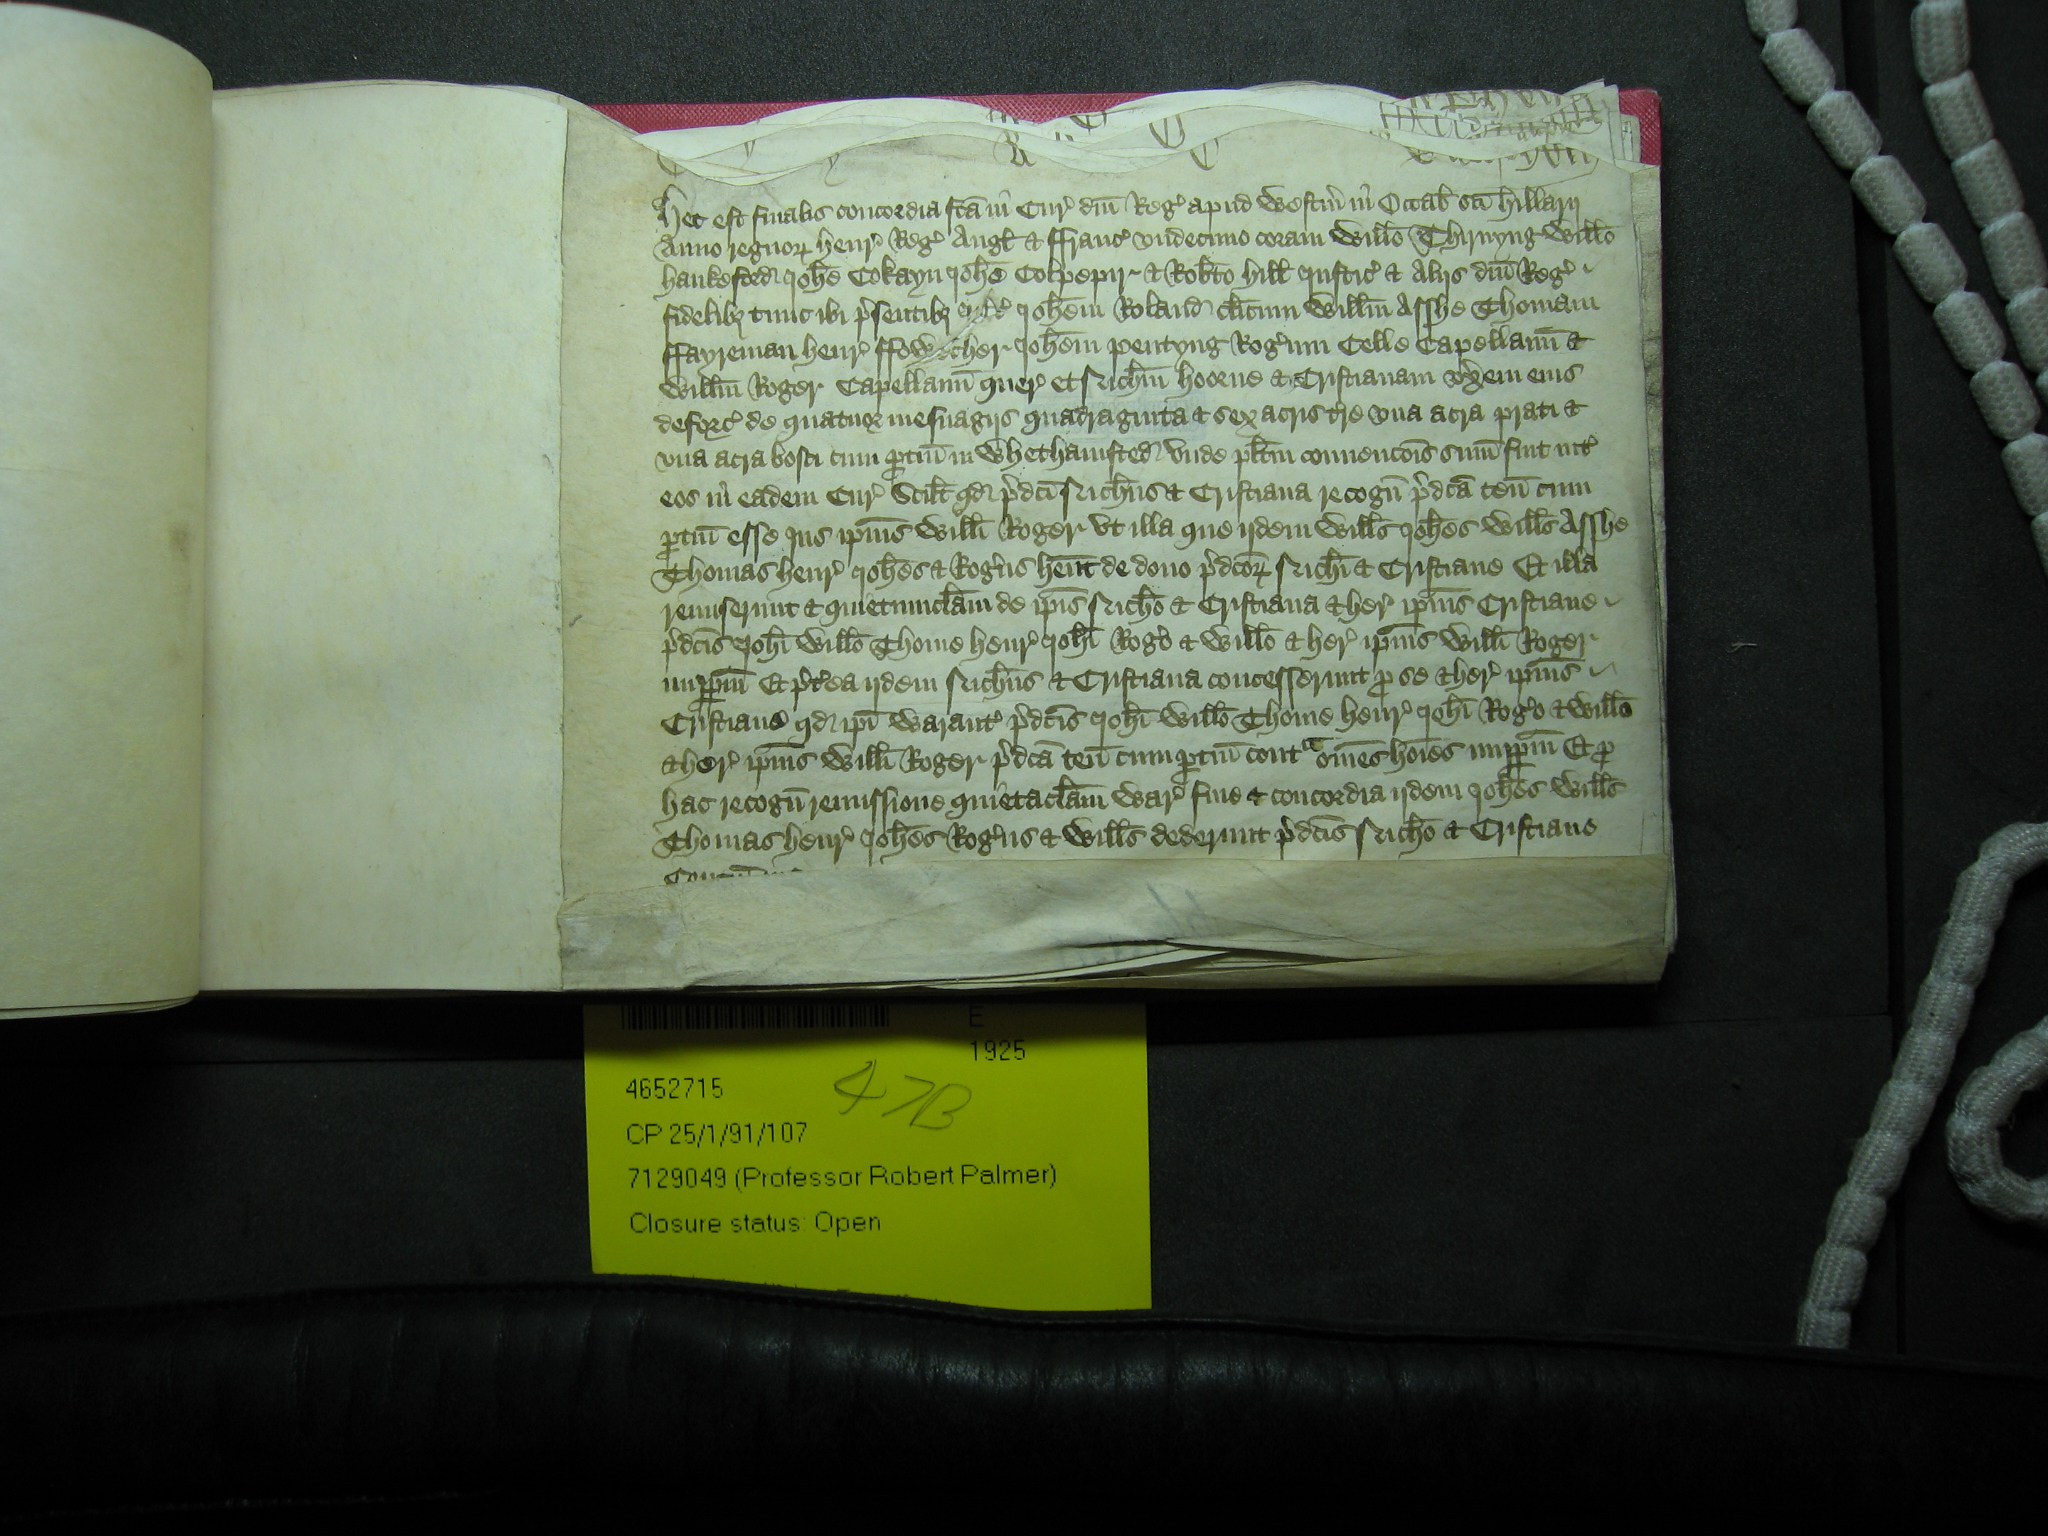 Hec est finalis concordia fc̄a in Cur' dn̄i Reg' apud Westm̄ in Octab̄ sc̄i hillarij
Anno regnoꝝ henr' Reg' Angl̄ & ffranc' undecimo coram Will̄o Thirnyng Will̄o
hankeford Joh̄e Cokayn Joh̄e Colpepir & Rob̄to hill̄ Justic' & Alijs dn̄i Reg'
fidelibꝫ tunc ibi p'sentibꝫ int' Joh̄em Roland cl̄icum Will̄m Asshe Thomam
ffayreman henr' Joh̄em pentyng Rog'um Celle Capellanū &
Will̄m Roger Capellanū quer' et Rich̄m hoorne & Cristianam ux̄em eius
deforc' de quatuor mesuagijs quadraginta & sex acris t're una acra prati &
una acra bosci cum ꝑtin̄ in Whethamsted unde pl̄itm convencōis sum̄ fuit int'
eos in eadem Cur' Scil̄t qd p'dc̄i Rich̄us & Cristiana recogn̄ p'dc̄a ten̄ cum
ꝑtin̄ esse Jus ip̄ius Will̄i Roger Ut illa que ijdem Will̄s Joh̄es Will̄s Asshe
Thomas henr' Joh̄es & Rog'us hēnt de dono p'dc̄oꝝ Rich̄i & Cristiane Et illa
remiserunt & quietumclam̄ de ip̄is Rich̄o & Cristiana & her' ip̄ius Cristiane
p'dc̄is Joh̄i Will̄o Thome henr' Joh̄i Rog'o & Will̄o & her' ip̄ius Will̄i Roger
imꝑpm̄ Et p't'ea ijdem Rich̄us & Cristiana concesserunt ꝑ se & her' ip̄ius
Cristiane qd ip̄i Warant' p'dc̄is Joh̄i Will̄o Thome henr' Joh̄i Rog'o & Will̄o
& her' ip̄ius Will̄i Roger p'dc̄a ten̄ cum ꝑtin̄ contᵃ om̄es hoīes imꝑpm̄ Et ꝑ
hac recogn̄ remissione quietaclam̄ War' fine & concordia ijdem Joh̄es Will̄s
Thomas henr' Joh̄es Rog'us & Will̄s dederunt p'dc̄is Rich̄o & Cristiane
E
1925
4652715
47B
CP 25/1/91/107
7129049 (Professor Robert Palmer)
Closure status: Open